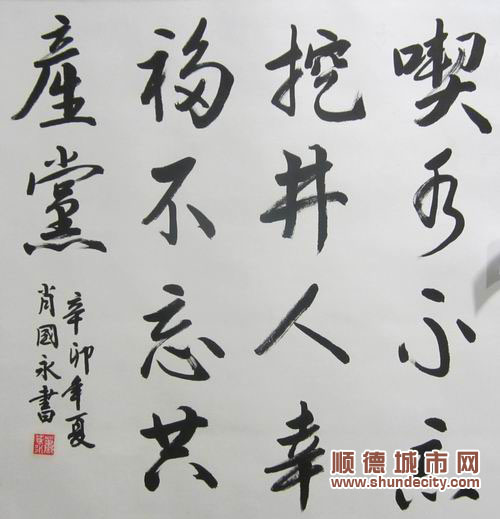 喫水不忘
挖井人幸
福不忘共
産黨
辛卯年夏
肖國永書
顺德城市网
www.shundecity.com